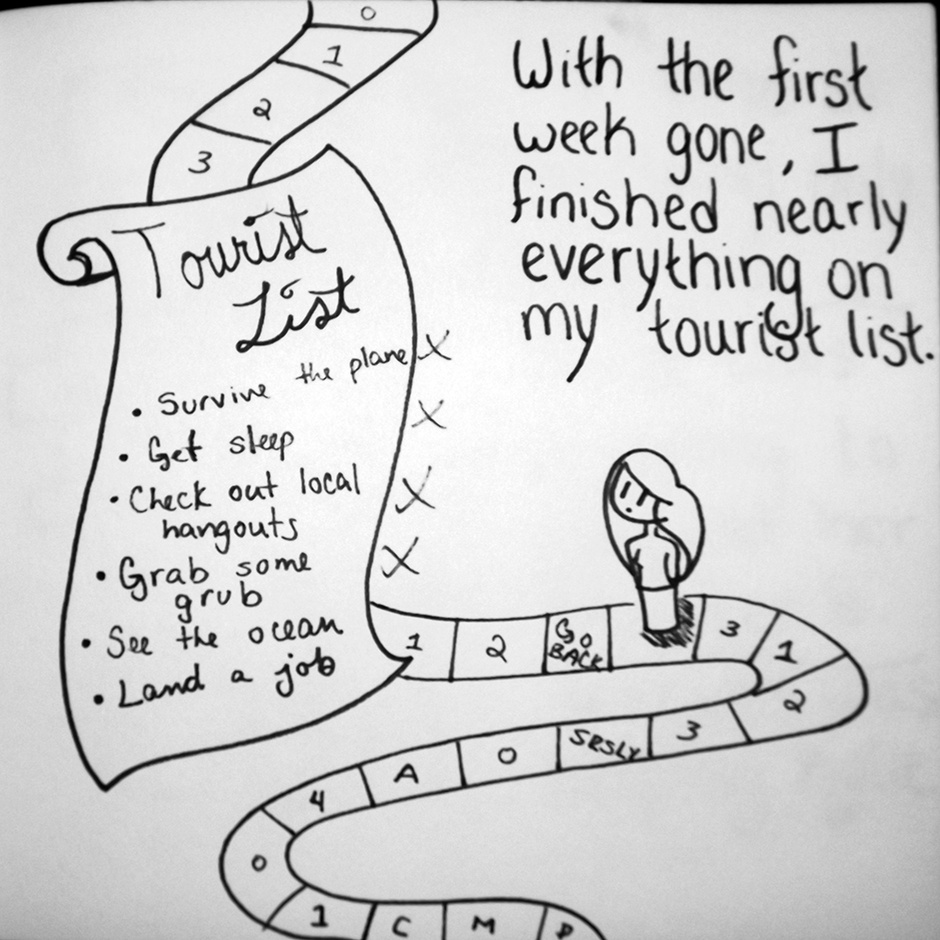 0
1
2
3
With the first
week gone, I
finished nearly
everything on
my tourist list.
Tourist
List
• Survive the plane X
• Get sleep X
• Check out local X
hangouts
• Grab some X
grub
• See the ocean
• Land a job
1 2 GO BACK 3 1
2
3
SRSLY
O
A
4
0
1 C M